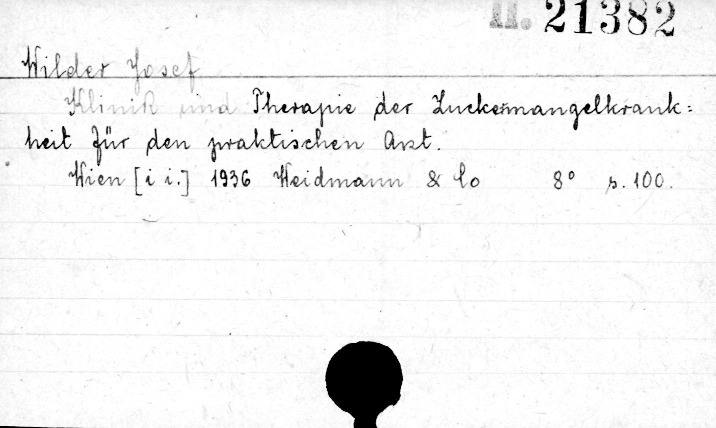 II. 21382
Wilder Josef
Klinik und Therapie der Zuckermangelkrank=
heit für den praktischen Arzt.
Wien [i i.] 1936 Weidmann & Co 8° s. 100.